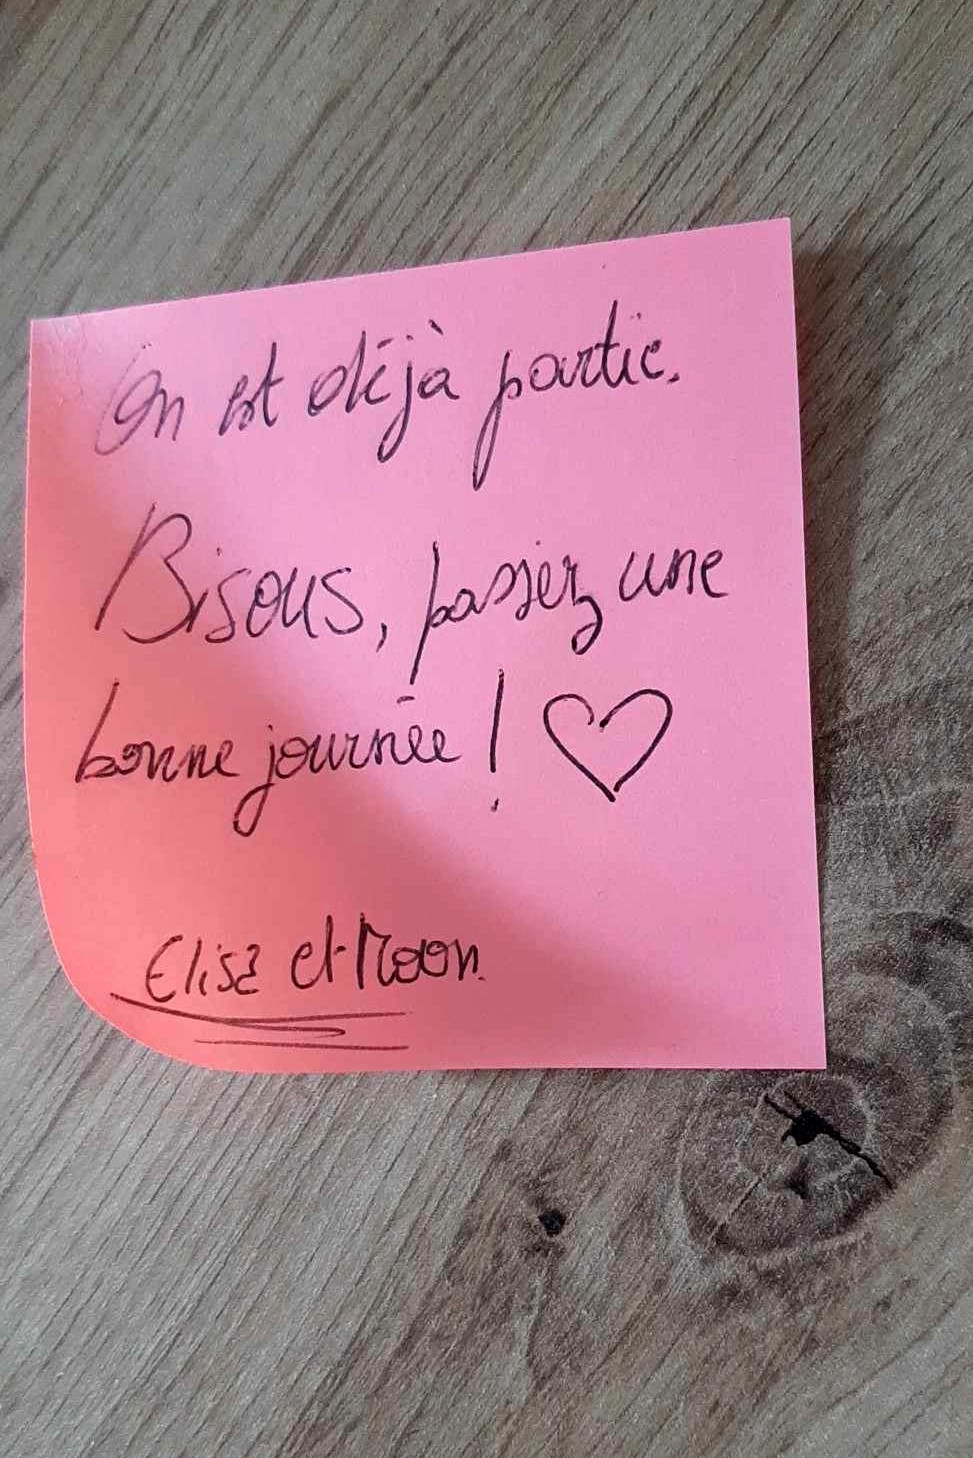 On est déjà partie.
Bisous, passez une
bonne journée ! ♡
Elisa et Moon.